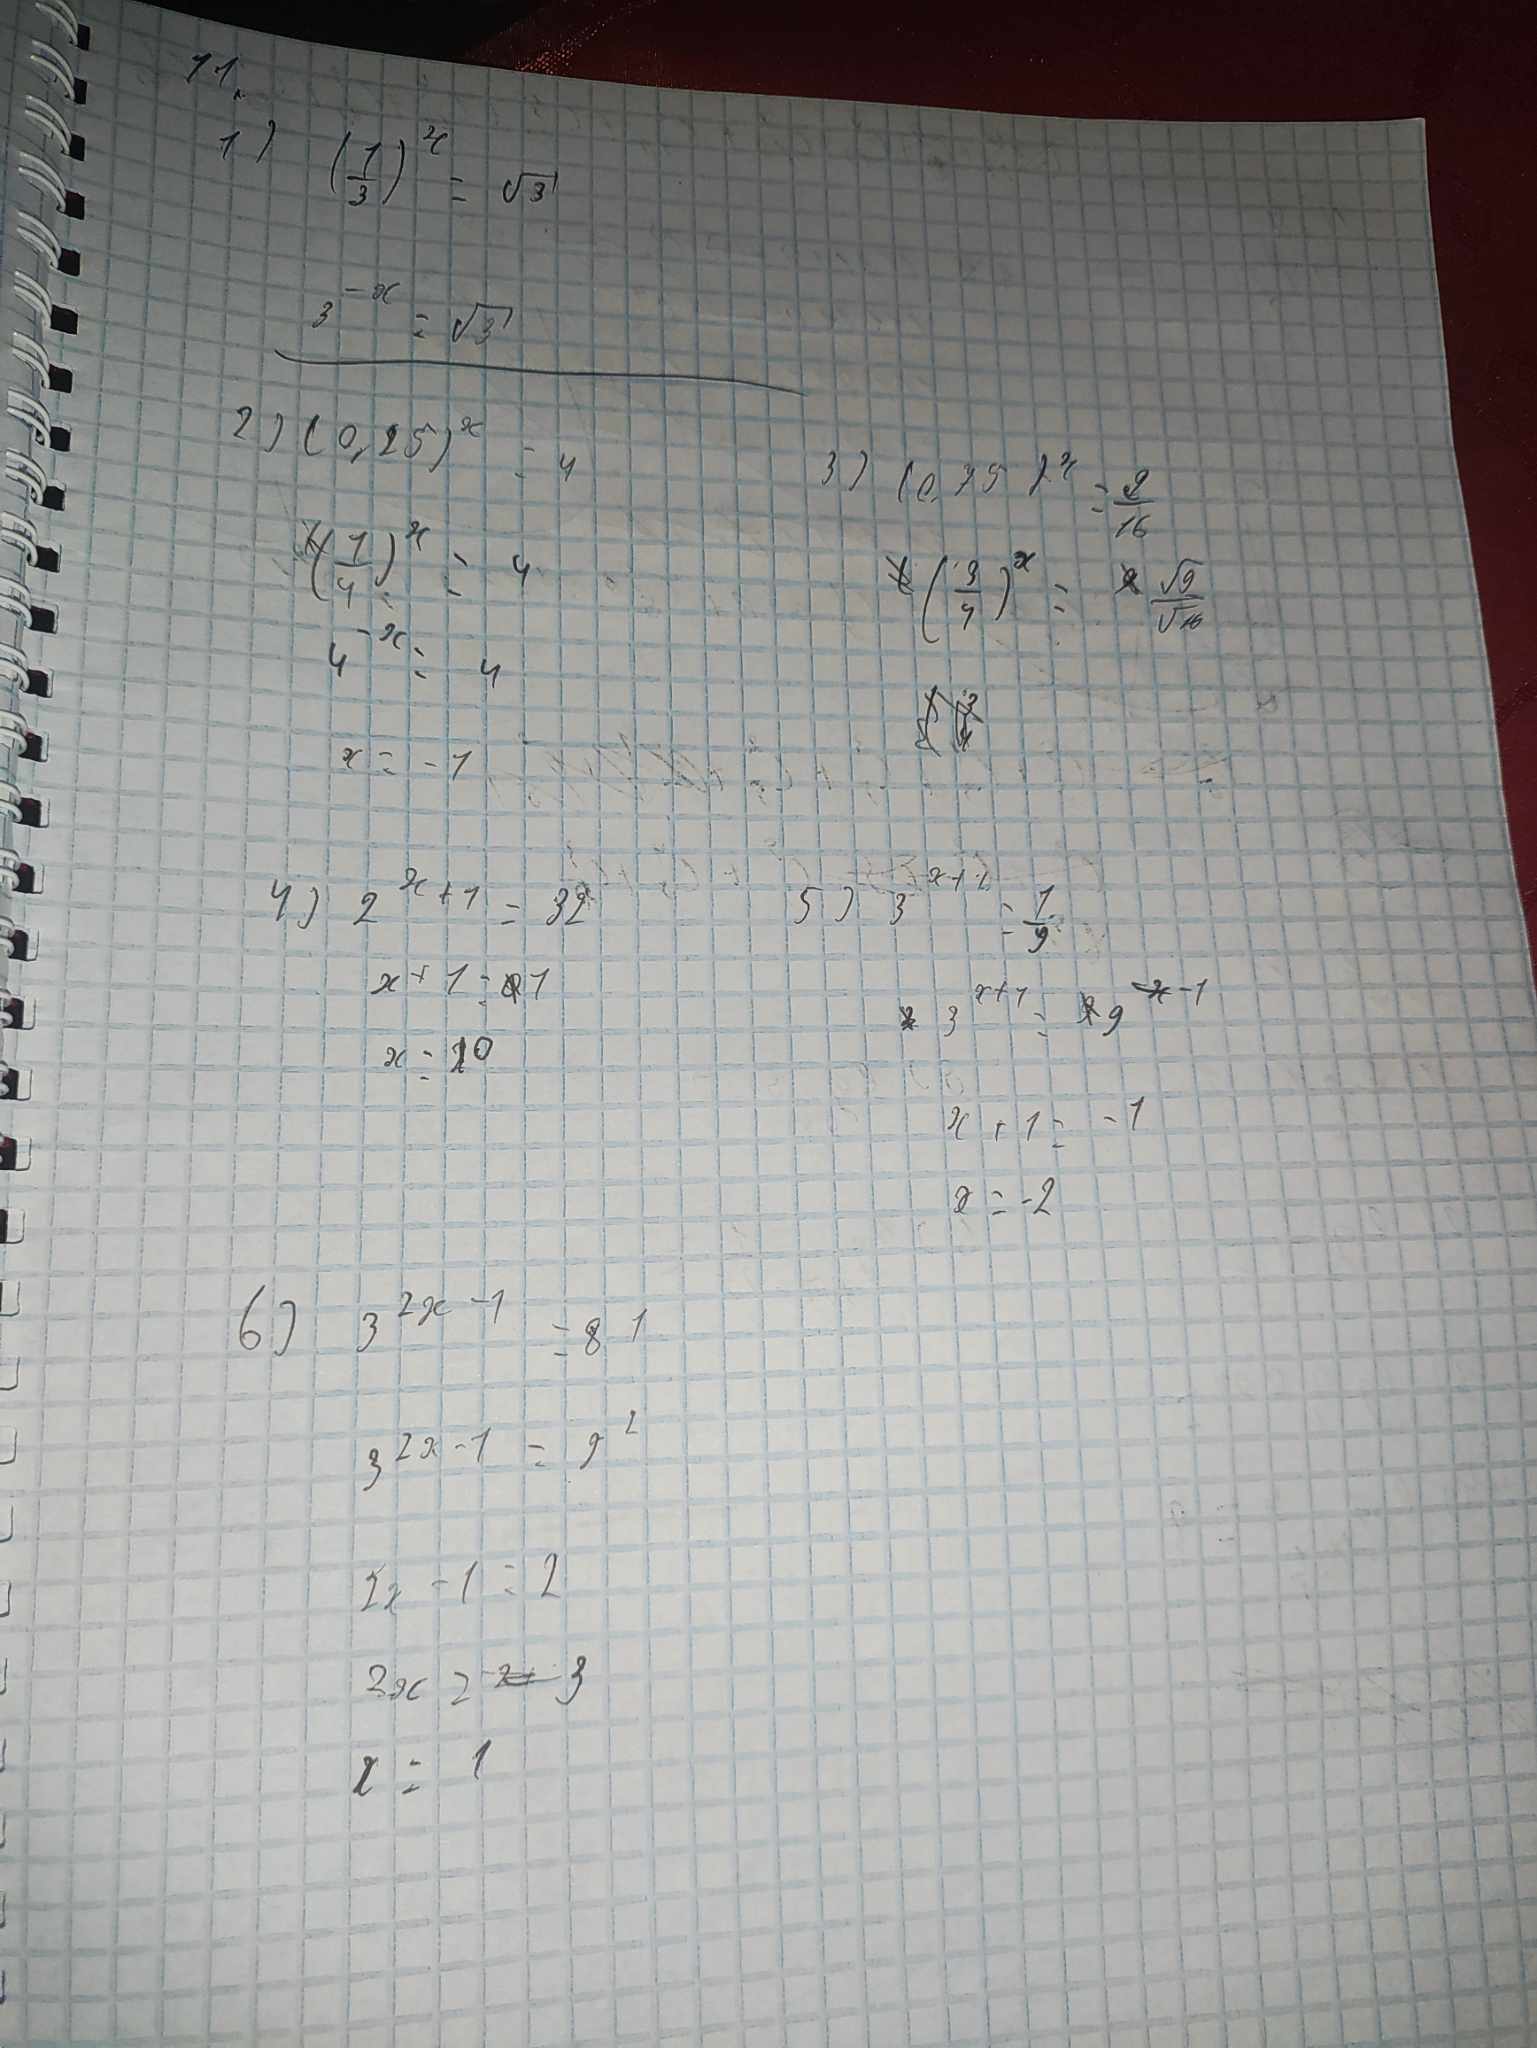 11.
1) (1/3)^x = √3
3^-x = √3
2) (0,25)^x = 4
(1/4)^x = 4
4^-x = 4
x = -1
3) (0,75)^x = 9/16
(3/4)^x = √9/√16
4) 2^x+1 = 32
x + 1 = 1
x = 0
5) 3^x+1 = 1/9
3^x+1 = 9^-1
x + 1 = -1
x = -2
6) 3^2x-1 = 81
3^2x-1 = 9^2
2x - 1 = 2
2x = 3
x = 1